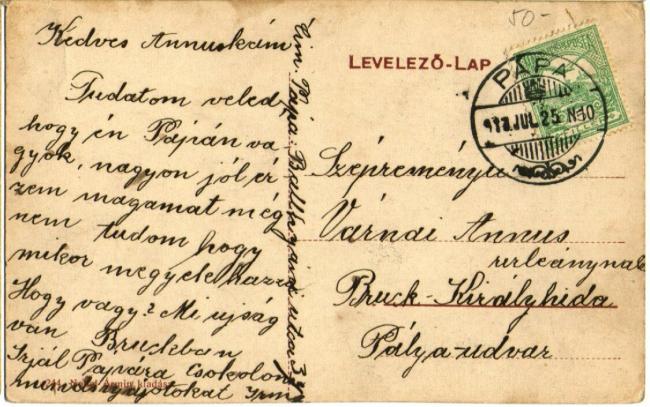 Kedves Annuskám
Tudatom veled
hogy én Pápán va
gyok, nagyon jól ér
zem magamat még
nem tudom hogy
mikor megyek haza
Hogy vagy? Mi ujság
van Bruckban
Irjál Pápára Csokolom
Irm
Czim. Pápa.
utca 37
LEVELEZŐ-LAP
50-
PÁPA
913.JUL.25 N10
Várnai Annus
urleánynak
Bruck-Királyhida
Pálya-udvar
kiadása